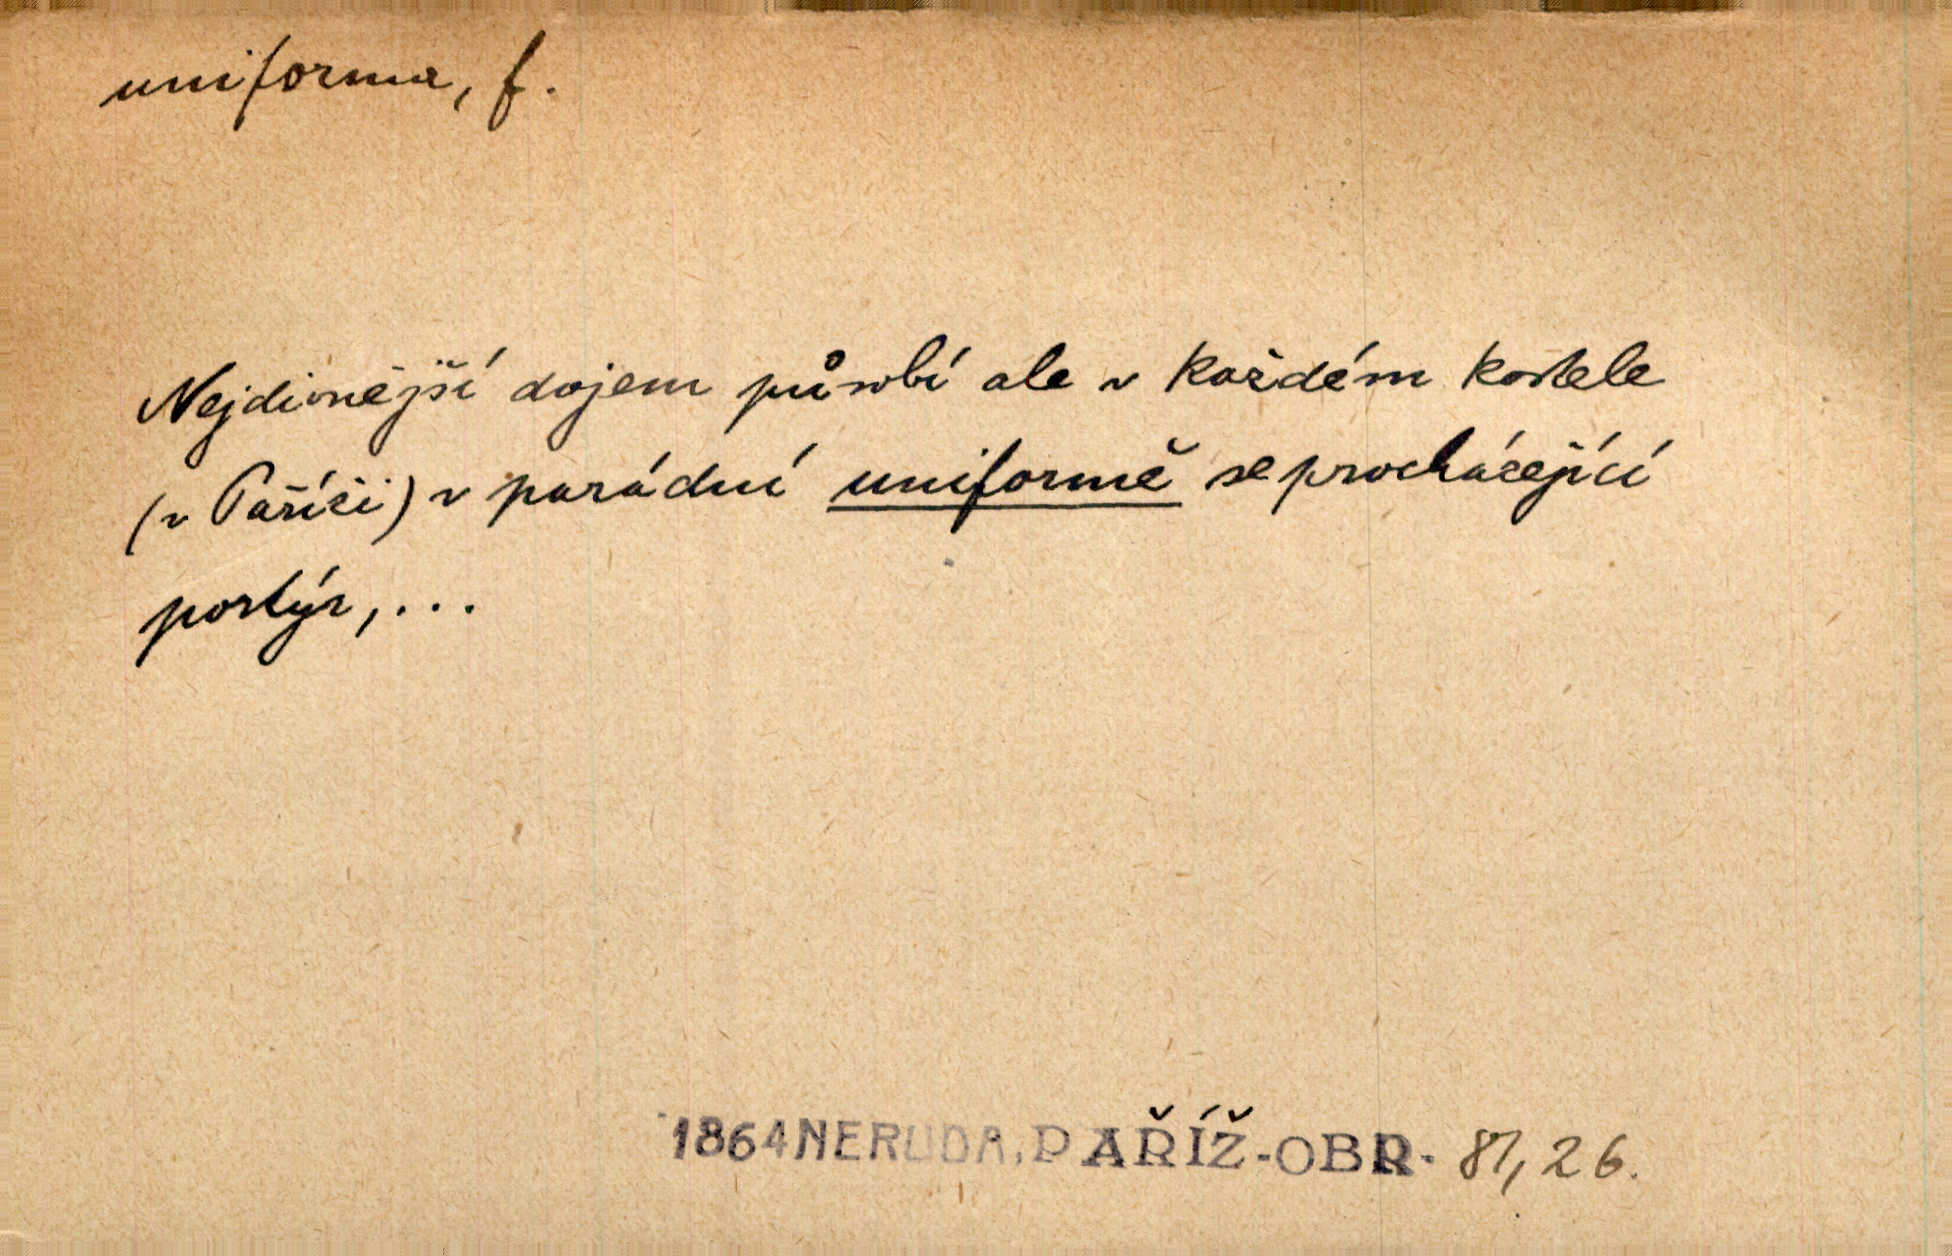 uniforma, f.
Nejdivnější dojem působí ale v každém kostele
(v Paříži) v parádní uniformě se procházející
portýr, ...
1864 NERUDA, PAŘÍŽ-OBR. 87, 26.